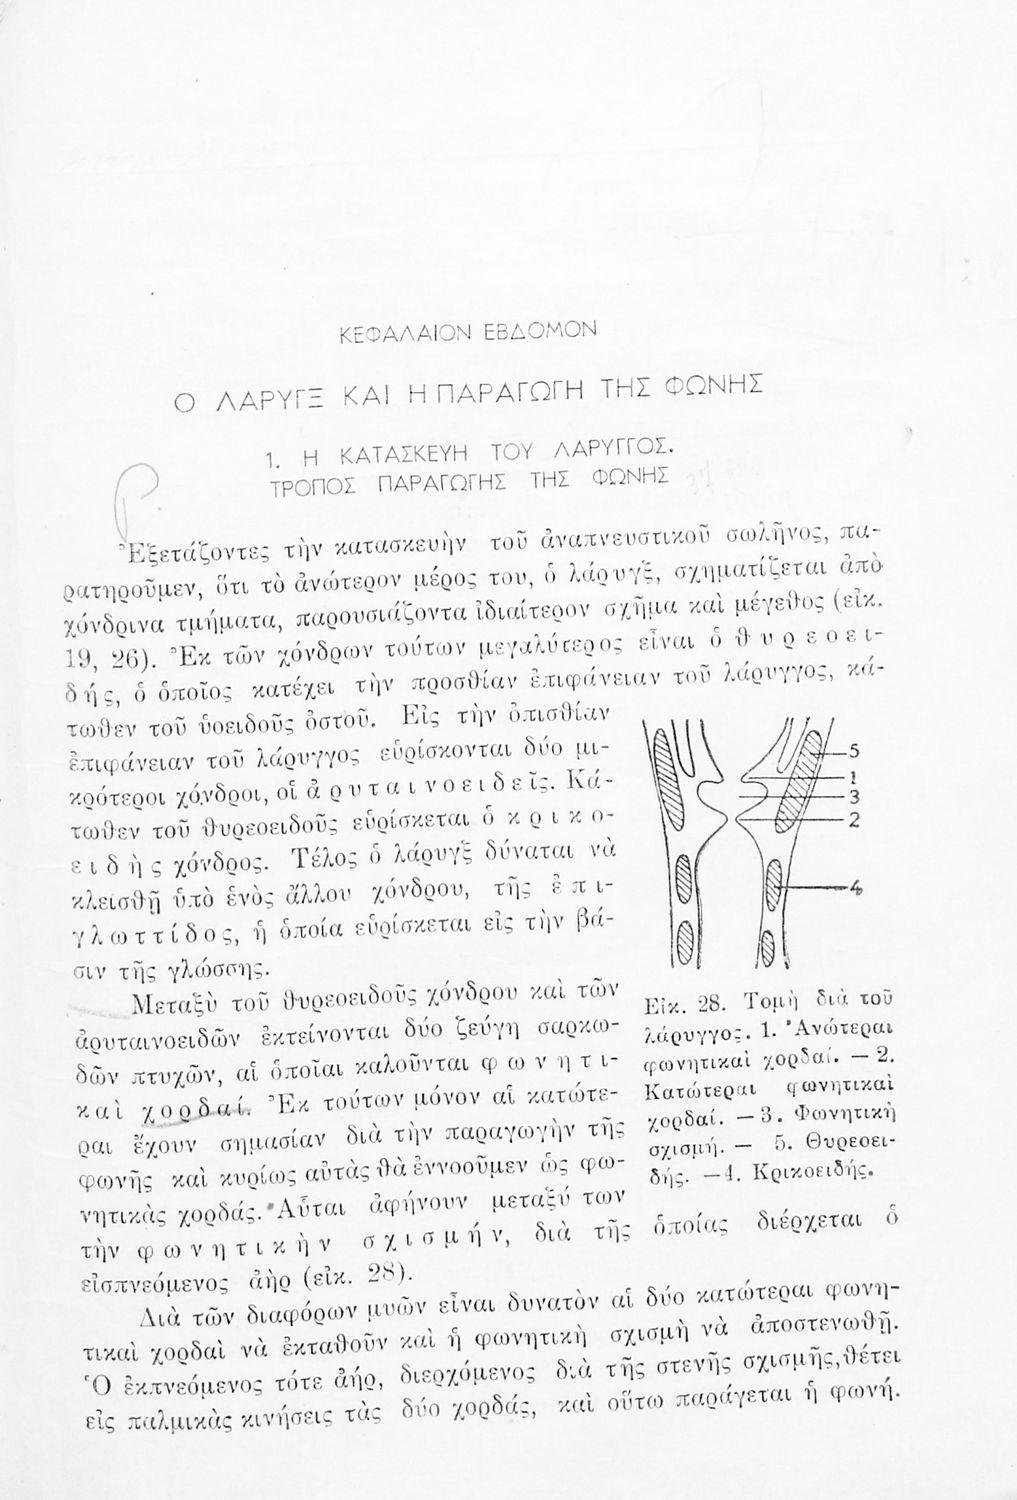 ΚΕΦΑΛΑΙΟΝ ΕΒΔΟΜΟΝ
Ο ΛΑΡΥΓΞ ΚΑΙ Η ΠΑΡΑΓΩΓΗ ΤΗΣ ΦΩΝΗΣ
1. Η ΚΑΤΑΣΚΕΥΗ ΤΟΥ ΛΑΡΥΓΓΟΣ.
ΤΡΟΠΟΣ ΠΑΡΑΓΩΓΗΣ ΤΗΣ ΦΩΝΗΣ
Ἐξετάζοντες τὴν κατασκευὴν τοῦ ἀναπνευστικοῦ σωλῆνος, πα-
ρατηροῦμεν, ὅτι τὸ ἀνώτερον μέρος του, ὁ λάρυγξ, σχηματίζεται ἀπὸ
χόνδρινα τμήματα, παρουσιάζοντα ἰδιαίτερον σχῆμα καὶ μέγεθος (εἰκ.
19, 26). Ἐκ τῶν χόνδρων τούτων μεγαλύτερος εἶναι ὁ θ υ ρ ε ο ε ι-
δ ή ς, ὁ ὁποῖος κατέχει τὴν προσθίαν ἐπιφάνειαν τοῦ λάρυγγος, κά-
τωθεν τοῦ ὑοειδοῦς ὀστοῦ. Εἰς τὴν ὀπισθίαν
ἐπιφάνειαν τοῦ λάρυγγος εὑρίσκονται δύο μι-
κρότεροι χόνδροι, οἱ ἀ ρ υ τ α ι ν ο ε ι δ ε ῖ ς. Κά-
τωθεν τοῦ θυρεοειδοῦς εὑρίσκεται ὁ κ ρ ι κ ο-
ε ι δ ὴ ς χόνδρος. Τέλος ὁ λάρυγξ δύναται νὰ
κλεισθῇ ὑπὸ ἑνὸς ἄλλου χόνδρου, τῆς ἐ π ι-
γ λ ω τ τ ί δ ο ς, ἡ ὁποία εὑρίσκεται εἰς τὴν βά-
σιν τῆς γλώσσης.
Μεταξὺ τοῦ θυρεοειδοῦς χόνδρου καὶ τῶν
ἀρυταινοειδῶν ἐκτείνονται δύο ζεύγη σαρκω-
δῶν πτυχῶν, αἱ ὁποῖαι καλοῦνται φ ω ν η τ ι-
κ α ὶ χ ο ρ δ α ί. Ἐκ τούτων μόνον αἱ κατώτε-
ραι ἔχουν σημασίαν διὰ τὴν παραγωγὴν τῆς
φωνῆς καὶ κυρίως αὐτὰς θὰ ἐννοοῦμεν ὡς φω-
νητικὰς χορδάς. Αὗται ἀφήνουν μεταξύ των
τὴν φ ω ν η τ ι κ ὴ ν σ χ ι σ μ ή ν, διὰ τῆς ὁποίας διέρχεται ὁ
εἰσπνεόμενος ἀὴρ (εἰκ. 28).
Διὰ τῶν διαφόρων μυῶν εἶναι δυνατὸν αἱ δύο κατώτεραι φωνη-
τικαὶ χορδαὶ νὰ ἐκταθοῦν καὶ ἡ φωνητικὴ σχισμὴ νὰ ἀποστενωθῇ.
Ὁ ἐκπνεόμενος τότε ἀήρ, διερχόμενος διὰ τῆς στενῆς σχισμῆς, θέτει
εἰς παλμικὰς κινήσεις τὰς δύο χορδάς, καὶ οὕτω παράγεται ἡ φωνή.
5
1
3
2
4
Εἰκ. 28. Τομὴ διὰ τοῦ
λάρυγγος. 1. Ἀνώτεραι
φωνητικαὶ χορδαί. — 2.
Κατώτεραι φωνητικαὶ
χορδαί. — 3. Φωνητικὴ
σχισμή. — 5. Θυρεοει-
δής. — 4. Κρικοειδής.